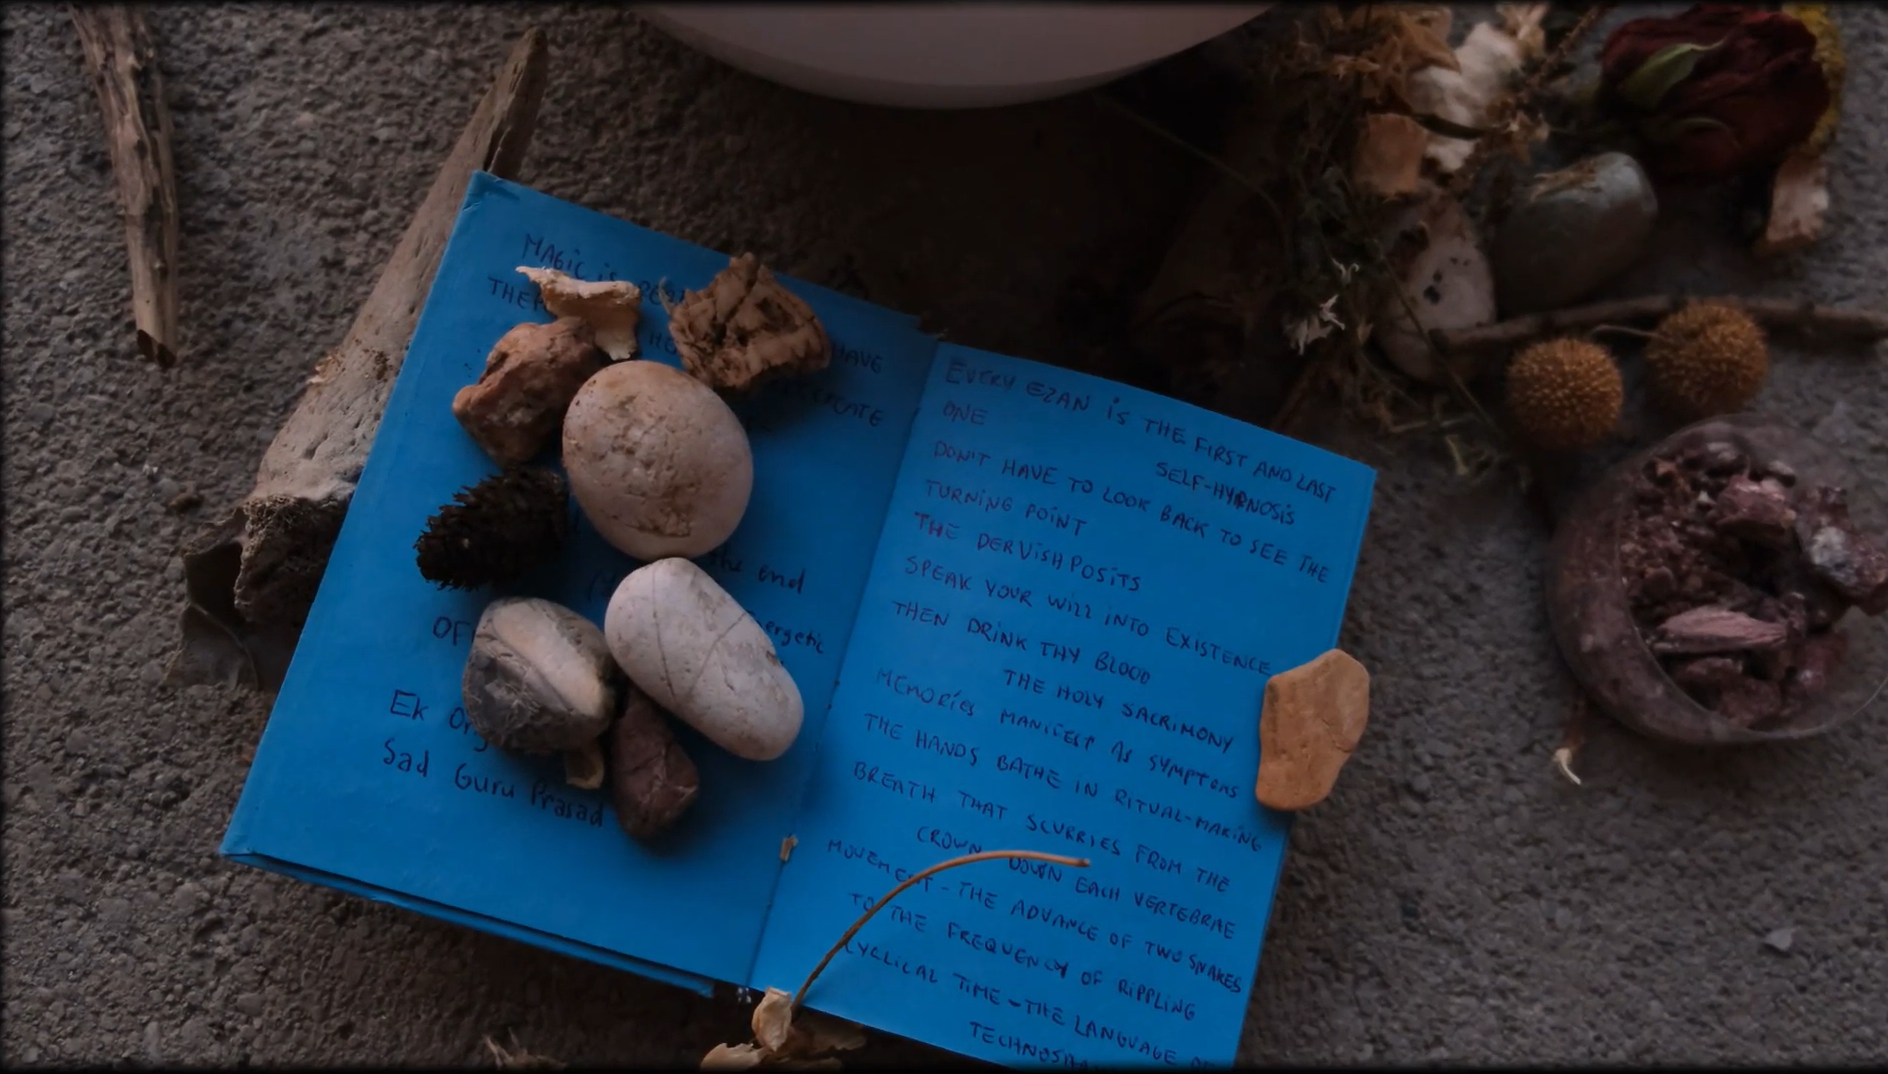 MAGIC IS
HAVE
the end
ergetic
OF
Ek
Sad Guru Prasad
EVERY EZAN IS THE FIRST AND LAST
ONE
SELF-HYPNOSIS
DON'T HAVE TO LOOK BACK TO SEE THE
TURNING POINT
THE DERVISH POSITS
SPEAK YOUR WILL INTO EXISTENCE
THEN DRINK THY BLOOD
THE HOLY SACRIMONY
MEMORIES MANIFEST AS SYMPTOMS
THE HANDS BATHE IN RITUAL-MAKING
BREATH THAT SCURRIES FROM THE
CROWN DOWN EACH VERTEBRAE
MOVEMENT - THE ADVANCE OF TWO SNAKES
TO THE FREQUENCY OF RIPPLING
CYCLICAL TIME - THE LANGUAGE OF